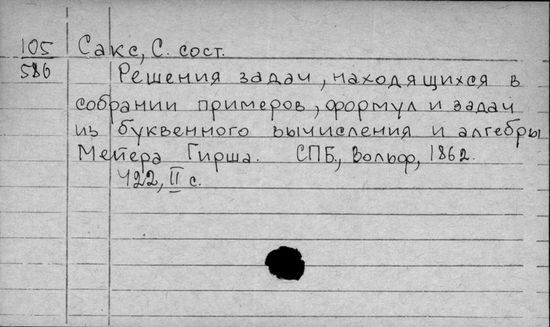 105 Сакс, С. сост.
586 Решения задач, находящихся в
собрании примеров, формул и задач
из буквенного вычисления и алгебры
Мейера Гирша. СПБ., Вольф, 1862.
422, II с.